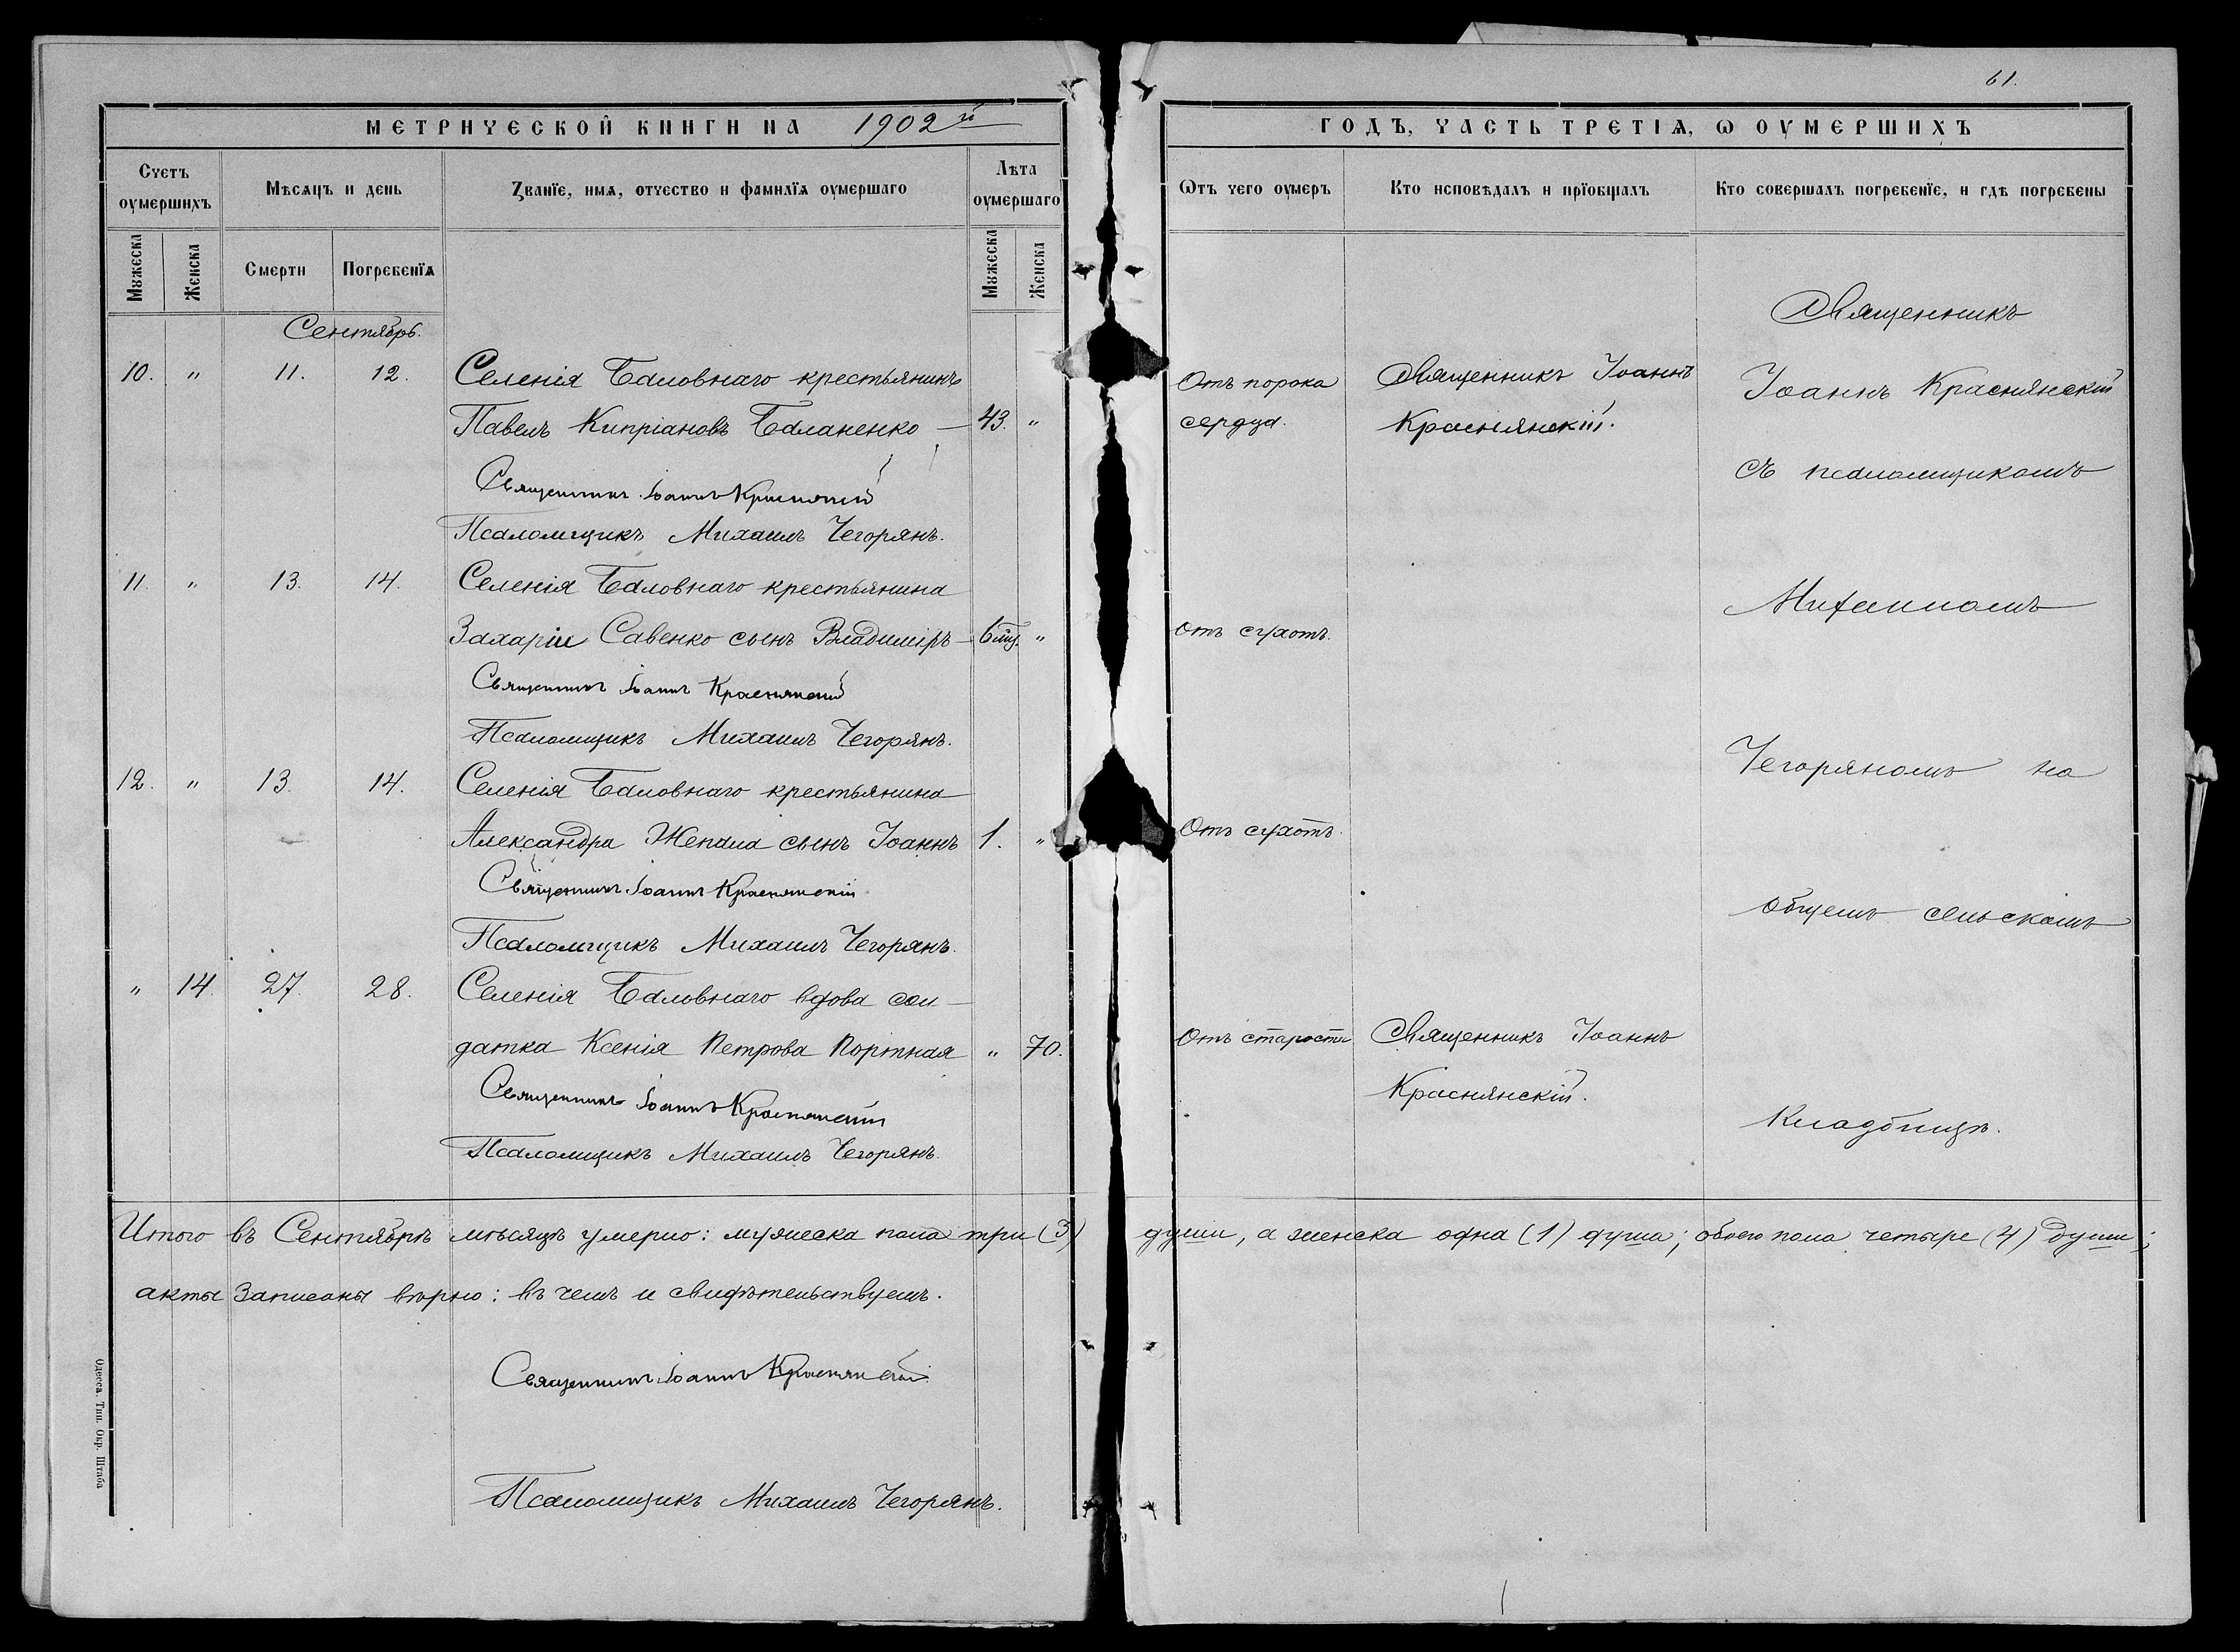 61.
МЕТРИЧЕСКОЙ КНИГИ НА 1902й
ГОДЪ, ЧАСТЬ ТРЕТІѦ, Ѡ ОУМЕРШИХЪ
Счетъ оумершихъ
Мѣсяцъ и день
Званїе, имѧ, отчество и фамилїѧ оумершаго
Лѣта оумершаго
Ѿтъ чего оумеръ
Кто исповѣдалъ и прїобщалъ
Кто совершалъ погребенїе, и гдѣ погребены
Мꙋжеска
Женска
Смерти
Погребенїѧ
Мꙋжеска
Женска
Сентябрь.
Священникъ
10. " 11. 12. Селенія Баловнаго крестьянинъ
Отъ порока Священникъ Іоаннъ Іоаннъ Краснянскій
Павелъ Кипріановъ Баланенко — 43. "
сердца. Краснянскій.
съ псаломщикомъ
Священникъ Іоаннъ Краснянскій
Псаломщикъ Михаилъ Чегорянъ.
11. " 13. 14. Селенія Баловнаго крестьянина
Михаиломъ
Захаріи Савенко сынъ Владиміръ — 6 мц. "
отъ сухотъ.
Священникъ Іоаннъ Краснянскій
Псаломщикъ Михаилъ Чегорянъ.
Чегоряномъ на
12. " 13. 14. Селенія Баловнаго крестьянина
Александра Жепала сынъ Іоаннъ 1. "
Отъ сухотъ.
Священникъ Іоаннъ Краснянскій
общемъ сельскомъ
Псаломщикъ Михаилъ Чегорянъ.
" 14. 27. 28. Селенія Баловнаго вдова сол-
датка Ксенія Петрова Портная " 70.
Отъ старости Священникъ Іоаннъ
Священникъ Іоаннъ Краснянскій
Краснянскій.
Кладбищѣ.
Псаломщикъ Михаилъ Чегорянъ.
Итого въ Сентябрѣ мѣсяцѣ умерло: мужеска пола три (3) души, а женска одна (1) душа; обоего пола четыре (4) души;
акты записаны вѣрно: въ чемъ и свидѣтельствуемъ.
Священникъ Іоаннъ Краснянскій.
Псаломщикъ Михаилъ Чегорянъ.
Одесса. Тип. Окр. Штаба